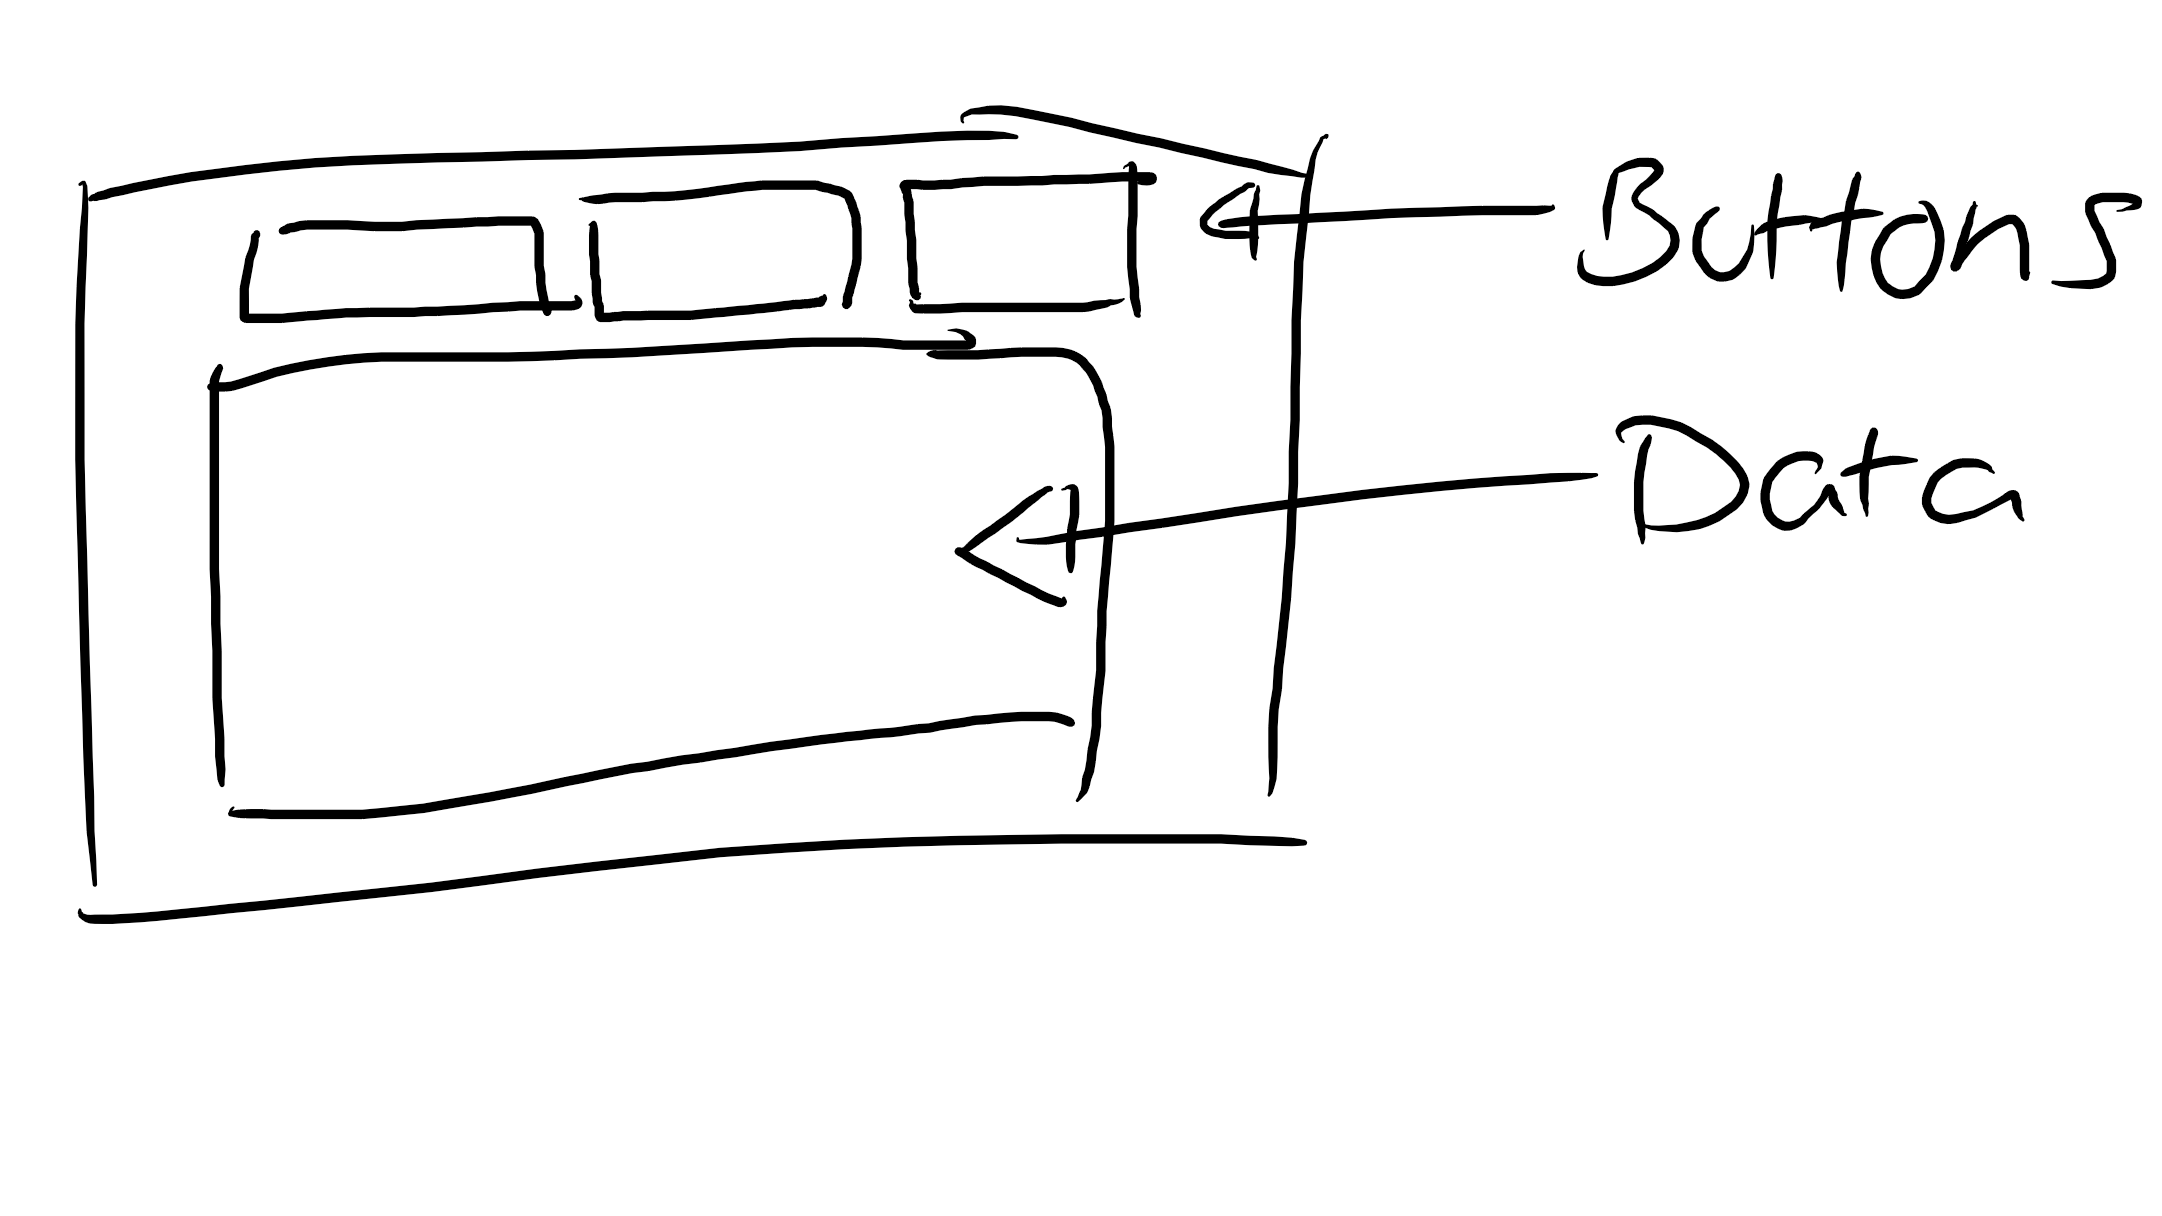 Buttons
Data